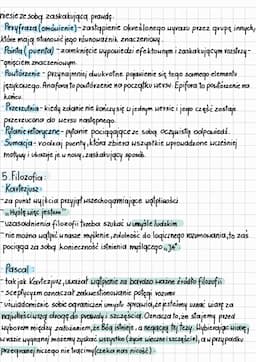 niesie ze sobą zaskakującą prawdę.
Peryfraza (omówienie) - zastąpienie określonego wyrazu przez grupę innych,
które mają stanowić jego równoważnik znaczeniowy.
Pointa (puenta) - zamknięcie wypowiedzi efektownym i zaskakującym rozstrzy-
gnięciem znaczeniowym.
Powtórzenie - przynajmniej dwukrotne pojawienie się tego samego elementu
językowego. Anafora to powtórzenie na początku wersu. Epifora to powtórzenie na
końcu.
Przerzutnia - kiedy zdanie nie kończy się w jednym wersie i jego część zostaje
przerzucona do wersu następnego.
Pytanie retoryczne - pytanie pociągające ze sobą oczywistą odpowiedź.
Sumacja - rodzaj puenty, która zbiera wszystkie wprowadzone wcześniej
motywy i ukazuje je w nowy, zaskakujący sposób.
5. Filozofia:
Kartezjusz:
- za punkt wyjścia przyjął wszechogarniające wątpliwości
- "myślę więc jestem"
- uzasadnienia filozofii trzeba szukać w umyśle ludzkim
- nie można wątpić w nasze myślenie, zdolność do logicznego rozumowania, to zaś
pociąga za sobą konieczność istnienia myślącego "JA"
Pascal:
- tak jak Kartezjusz, uważał wątpienie za bardzo ważne źródło filozofii
- sceptycyzm oznaczał zakwestionowanie potęgi rozumu
- uświadomienie sobie ograniczeń umysłu sprawia, że jesteśmy uznać wiarę za
najwłaściwszą drogę do prawdy i szczęścia. Oznacza to, że stajemy przed
wyborem między założeniem, że Bóg istnieje, a negacją tej tezy. Wybierając wiarę,
w razie wygranej możemy zyskać wszystko (życie wieczne i szczęście), a w przypadku
przegranej niczego nie tracimy (czeka nas nicość)